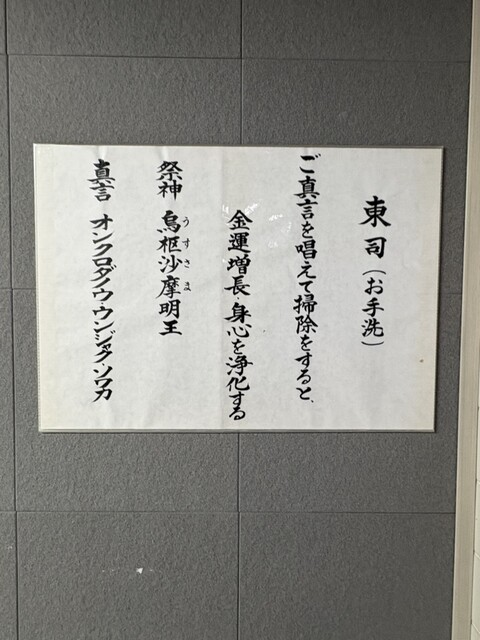 東司（お手洗）
ご真言を唱えて掃除をすると、
金運増長・身心を浄化する
祭神 烏枢沙摩明王
うすさま
真言 オンクロダノウ・ウンジャク・ソワカ